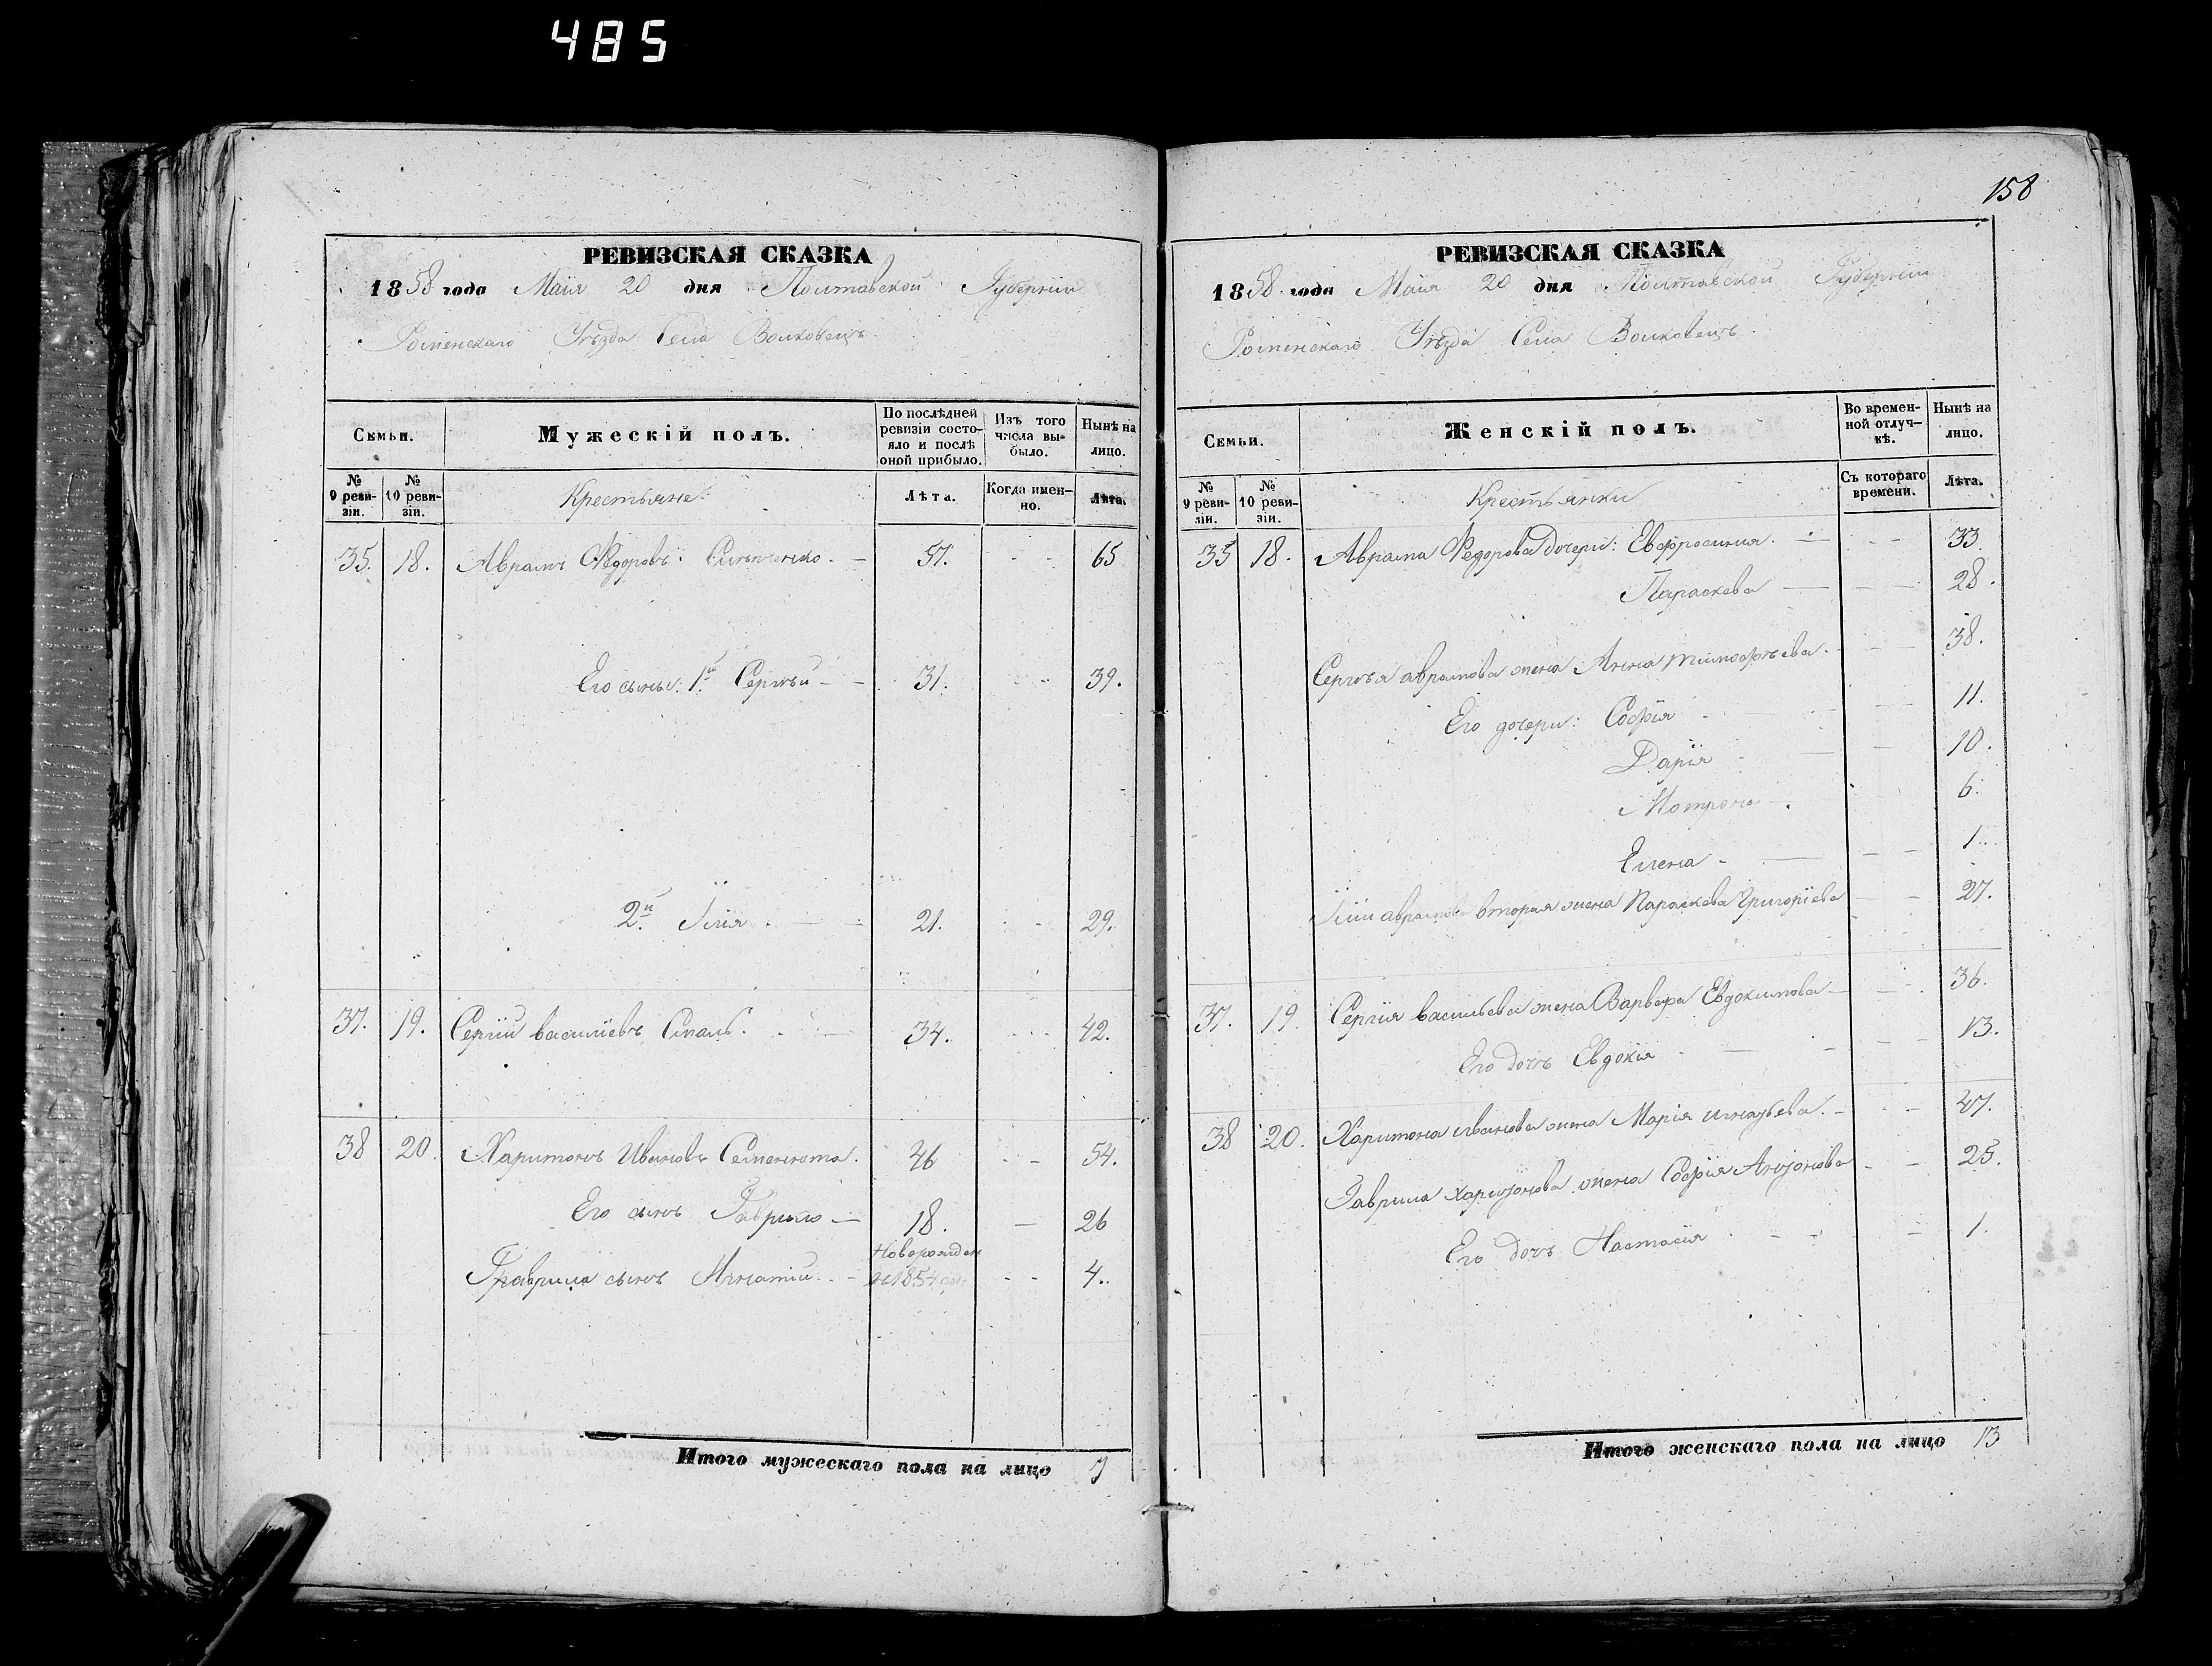 485
РЕВИЗСКАЯ СКАЗКА
1858 года Маія 20 дня Полтавской Губерніи
Роменскаго Уѣзда Села Волковецъ.
Семьи.
Мужескій полъ.
По послѣдней ревизіи состояло и послѣ оной прибыло.
Изъ того числа выбыло.
Нынѣ на лицо.
№ 9 ревизіи.
№ 10 ревизіи.
Крестьяне:
Лѣта.
Когда именно.
Лѣта.
35. 18. Аврамъ Ѳедоровъ: 57. 65
Его сыны: 1й Сергѣй 31. 39.
2й Ілія 21. 29.
37. 19. Сергій василіевъ 34. 42.
38 20. Харитонъ Ивановъ Семеннота. 46 54.
Его сынъ Гаврило 18. 26
Новорожден
Гаврила сынъ Игнатій 1854 4.
Итого мужескаго пола на лицо 7
158
РЕВИЗСКАЯ СКАЗКА
1858 года Маія 20 дня Полтавской Губерніи
Роменскаго Уѣзда Села Волковецъ.
Семьи.
Женскій полъ.
Во временной отлучкѣ.
Нынѣ на лицо.
№ 9 ревизіи.
№ 10 ревизіи.
Крестьянки
Съ котораго времени.
Лѣта.
35 18. Аврама Ѳедорова дочери: Евфросинія. 33
Параскева 28.
Сергѣя аврамова жена Анна тимофѣева. 38.
Его дочери: Софія 11.
Дарія 10.
Мотрона 6.
Елена 1.
Іліи аврамова вторая жена Параскева Григоріева 27.
37. 19. Сергія васильева жена Варвара Евдокимова 36.
Его дочь Евдокія 13.
38 20. Харитона иванова жена Марія игнатьева. 47.
Гаврила харитонова жена Софія Антонова 25.
Его дочь Настасія 1.
Итого женскаго пола на лицо 13